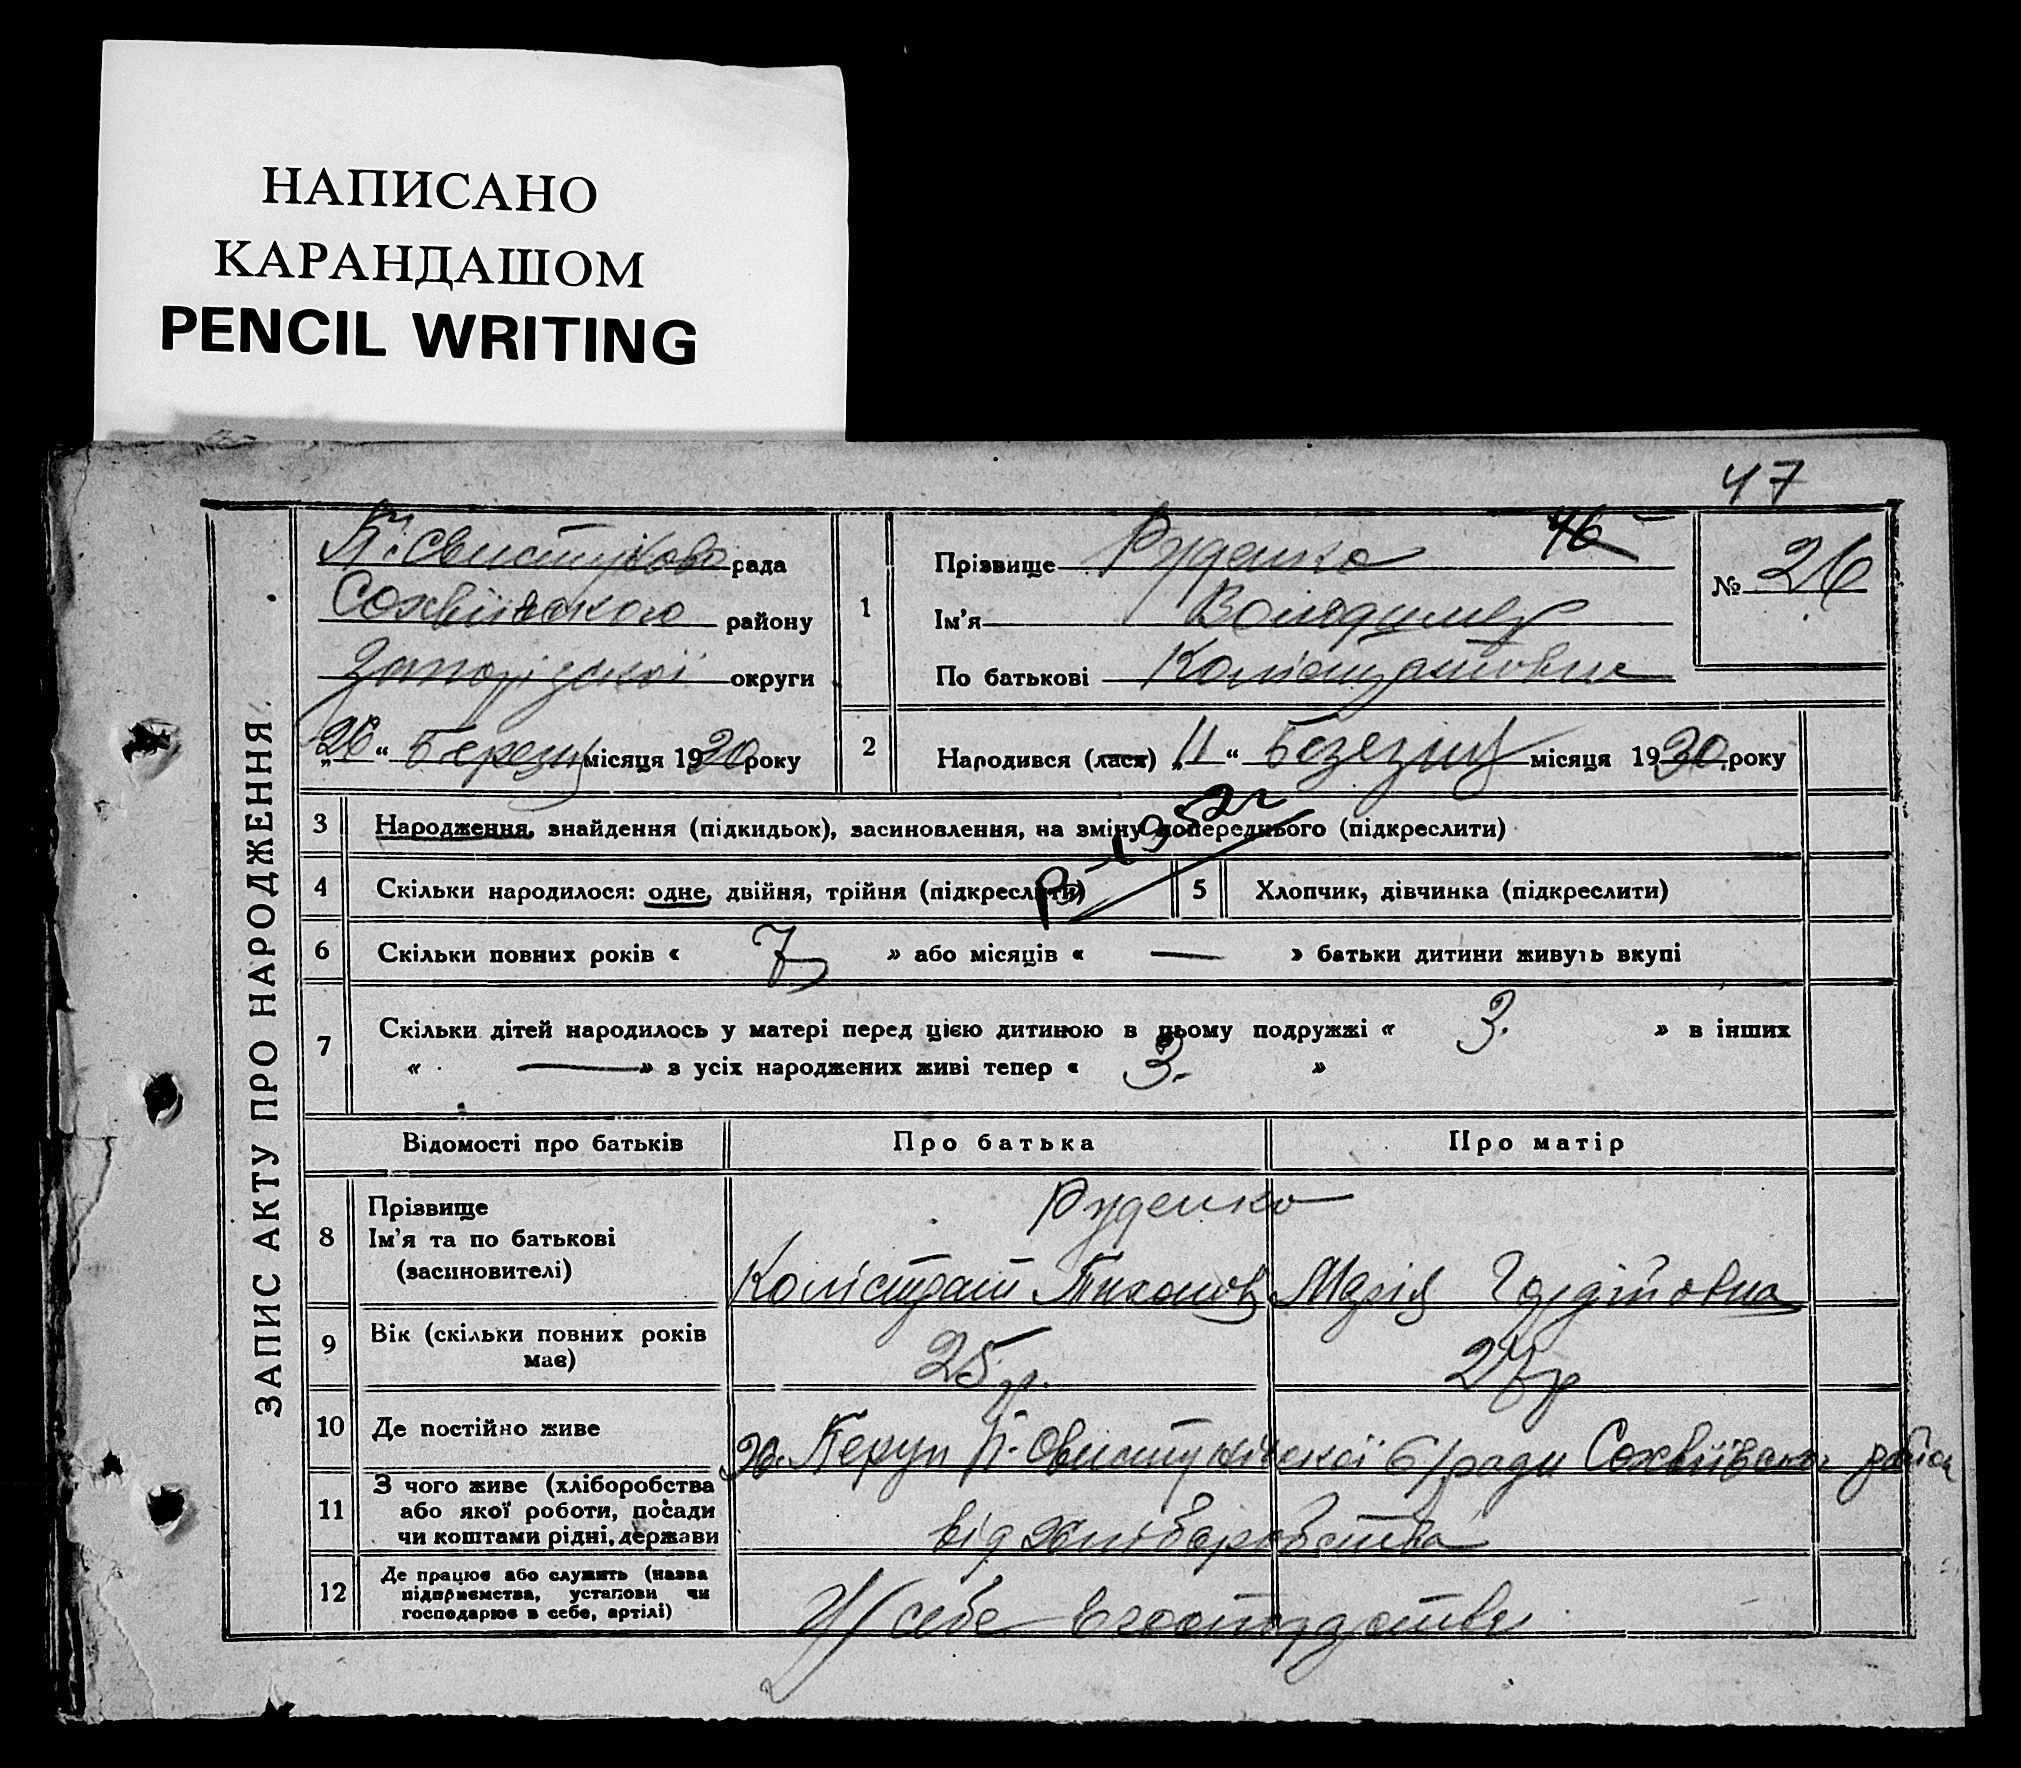 НАПИСАНО
КАРАНДАШОМ
PENCIL WRITING
47
ЗАПИС АКТУ ПРО НАРОДЖЕННЯ
рада
Софіївського району
Запорізької округи
„26“ Березня місяця 1930 року
1
Прізвище Руденко 46
Ім'я Володимер
По батькові
№ 26
2 Народився (лася) „11“ місяця 1930 року
3 Народження, знайдення (підкидьок), засиновлення, на зміну попереднього (підкреслити)
4 Скільки народилося: одне, двійня, трійня (підкреслити) 5 Хлопчик, дівчинка (підкреслити)
6 Скільки повних років « 7 » або місяців « — » батьки дитини живуть вкупі
7 Скільки дітей народилось у матері перед цією дитиною в цьому подружжі « 3. » в інших
« — » з усіх народжених живі тепер « 3. »
Відомості про батьків Про батька Про матір
8 Прізвище
Ім'я та по батькові
(засиновителі)
Руденко
Калістрат Тихонов Марія Гордійовна
9 Вік (скільки повних років
має)
25 р.
10 Де постійно живе
11 З чого живе (хліборобства
або якої роботи, посади
чи коштами рідні, держави
від хліборобства
12 Де працює або служить (назва
підприємства, установи чи
господарює в себе, артілі)
У себе в господарстві